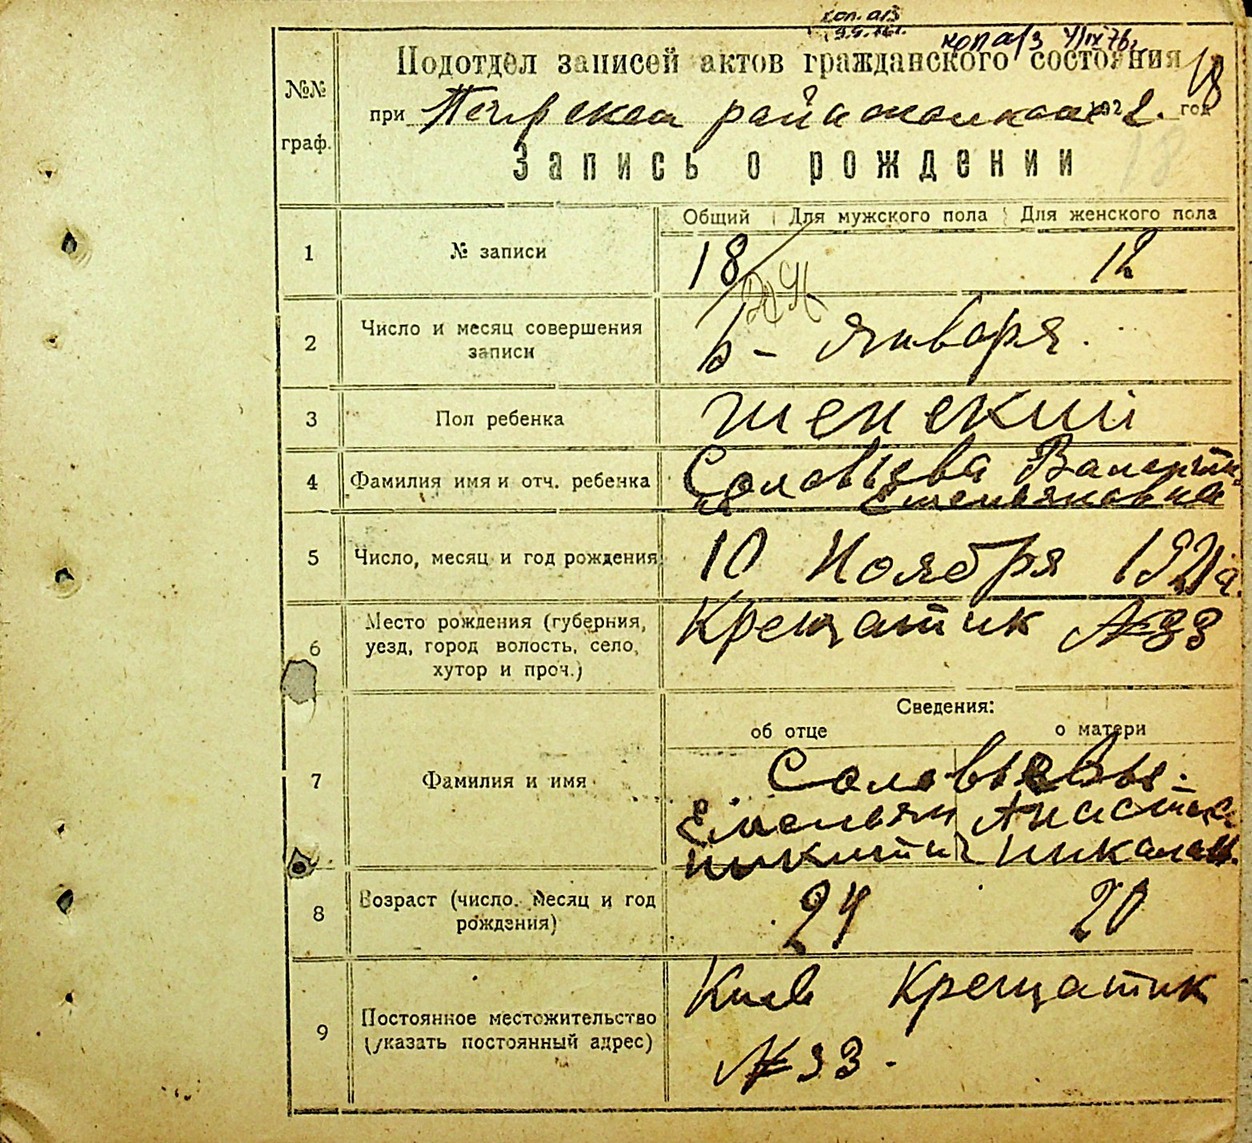 коп. а/з
коп а/з 4/IX 76г.
№№
граф.
Подотдел записей актов гражданского состояния
18
при Печерском 192 2. год
Запись о рождении
18
Общий Для мужского пола Для женского пола
1 № записи 18 12
2 Число и месяц совершения
записи 5 - января.
3 Пол ребенка женский
4 Фамилия имя и отч. ребенка Соловьева Валенти
на Емельяновна
5 Число, месяц и год рождения 10 Ноября 1921 г.
6 Место рождения (губерния,
уезд, город волость, село,
хутор и проч.) Крещатик № 33
Сведения:
об отце о матери
7 Фамилия и имя Соловьевы.
Емельян Анастас
Никитич Николаев.
8 Возраст (число. месяц и год
рождения) 24 20
9 Постоянное местожительство
(указать постоянный адрес) Киев Крещатик
№ 33.